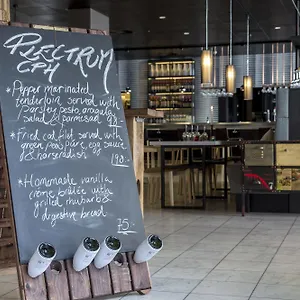 PLECTRUM
CPH
* Pepper marinated
tenderloin served with
parsley pesto, arugula
salad & parmesan
* Fried cod filet served with
green peas purée, egg sauce
& horseradish 190.-
* Homemade vanilla
creme brûlée with
grilled rhubarb &
digestive bread
75.-